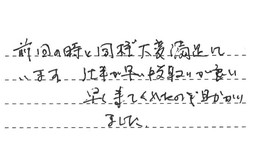 前回の時と同様大変満足して
います 仕事が早い 段取りが良い
早く来てくれたので助かり
ました